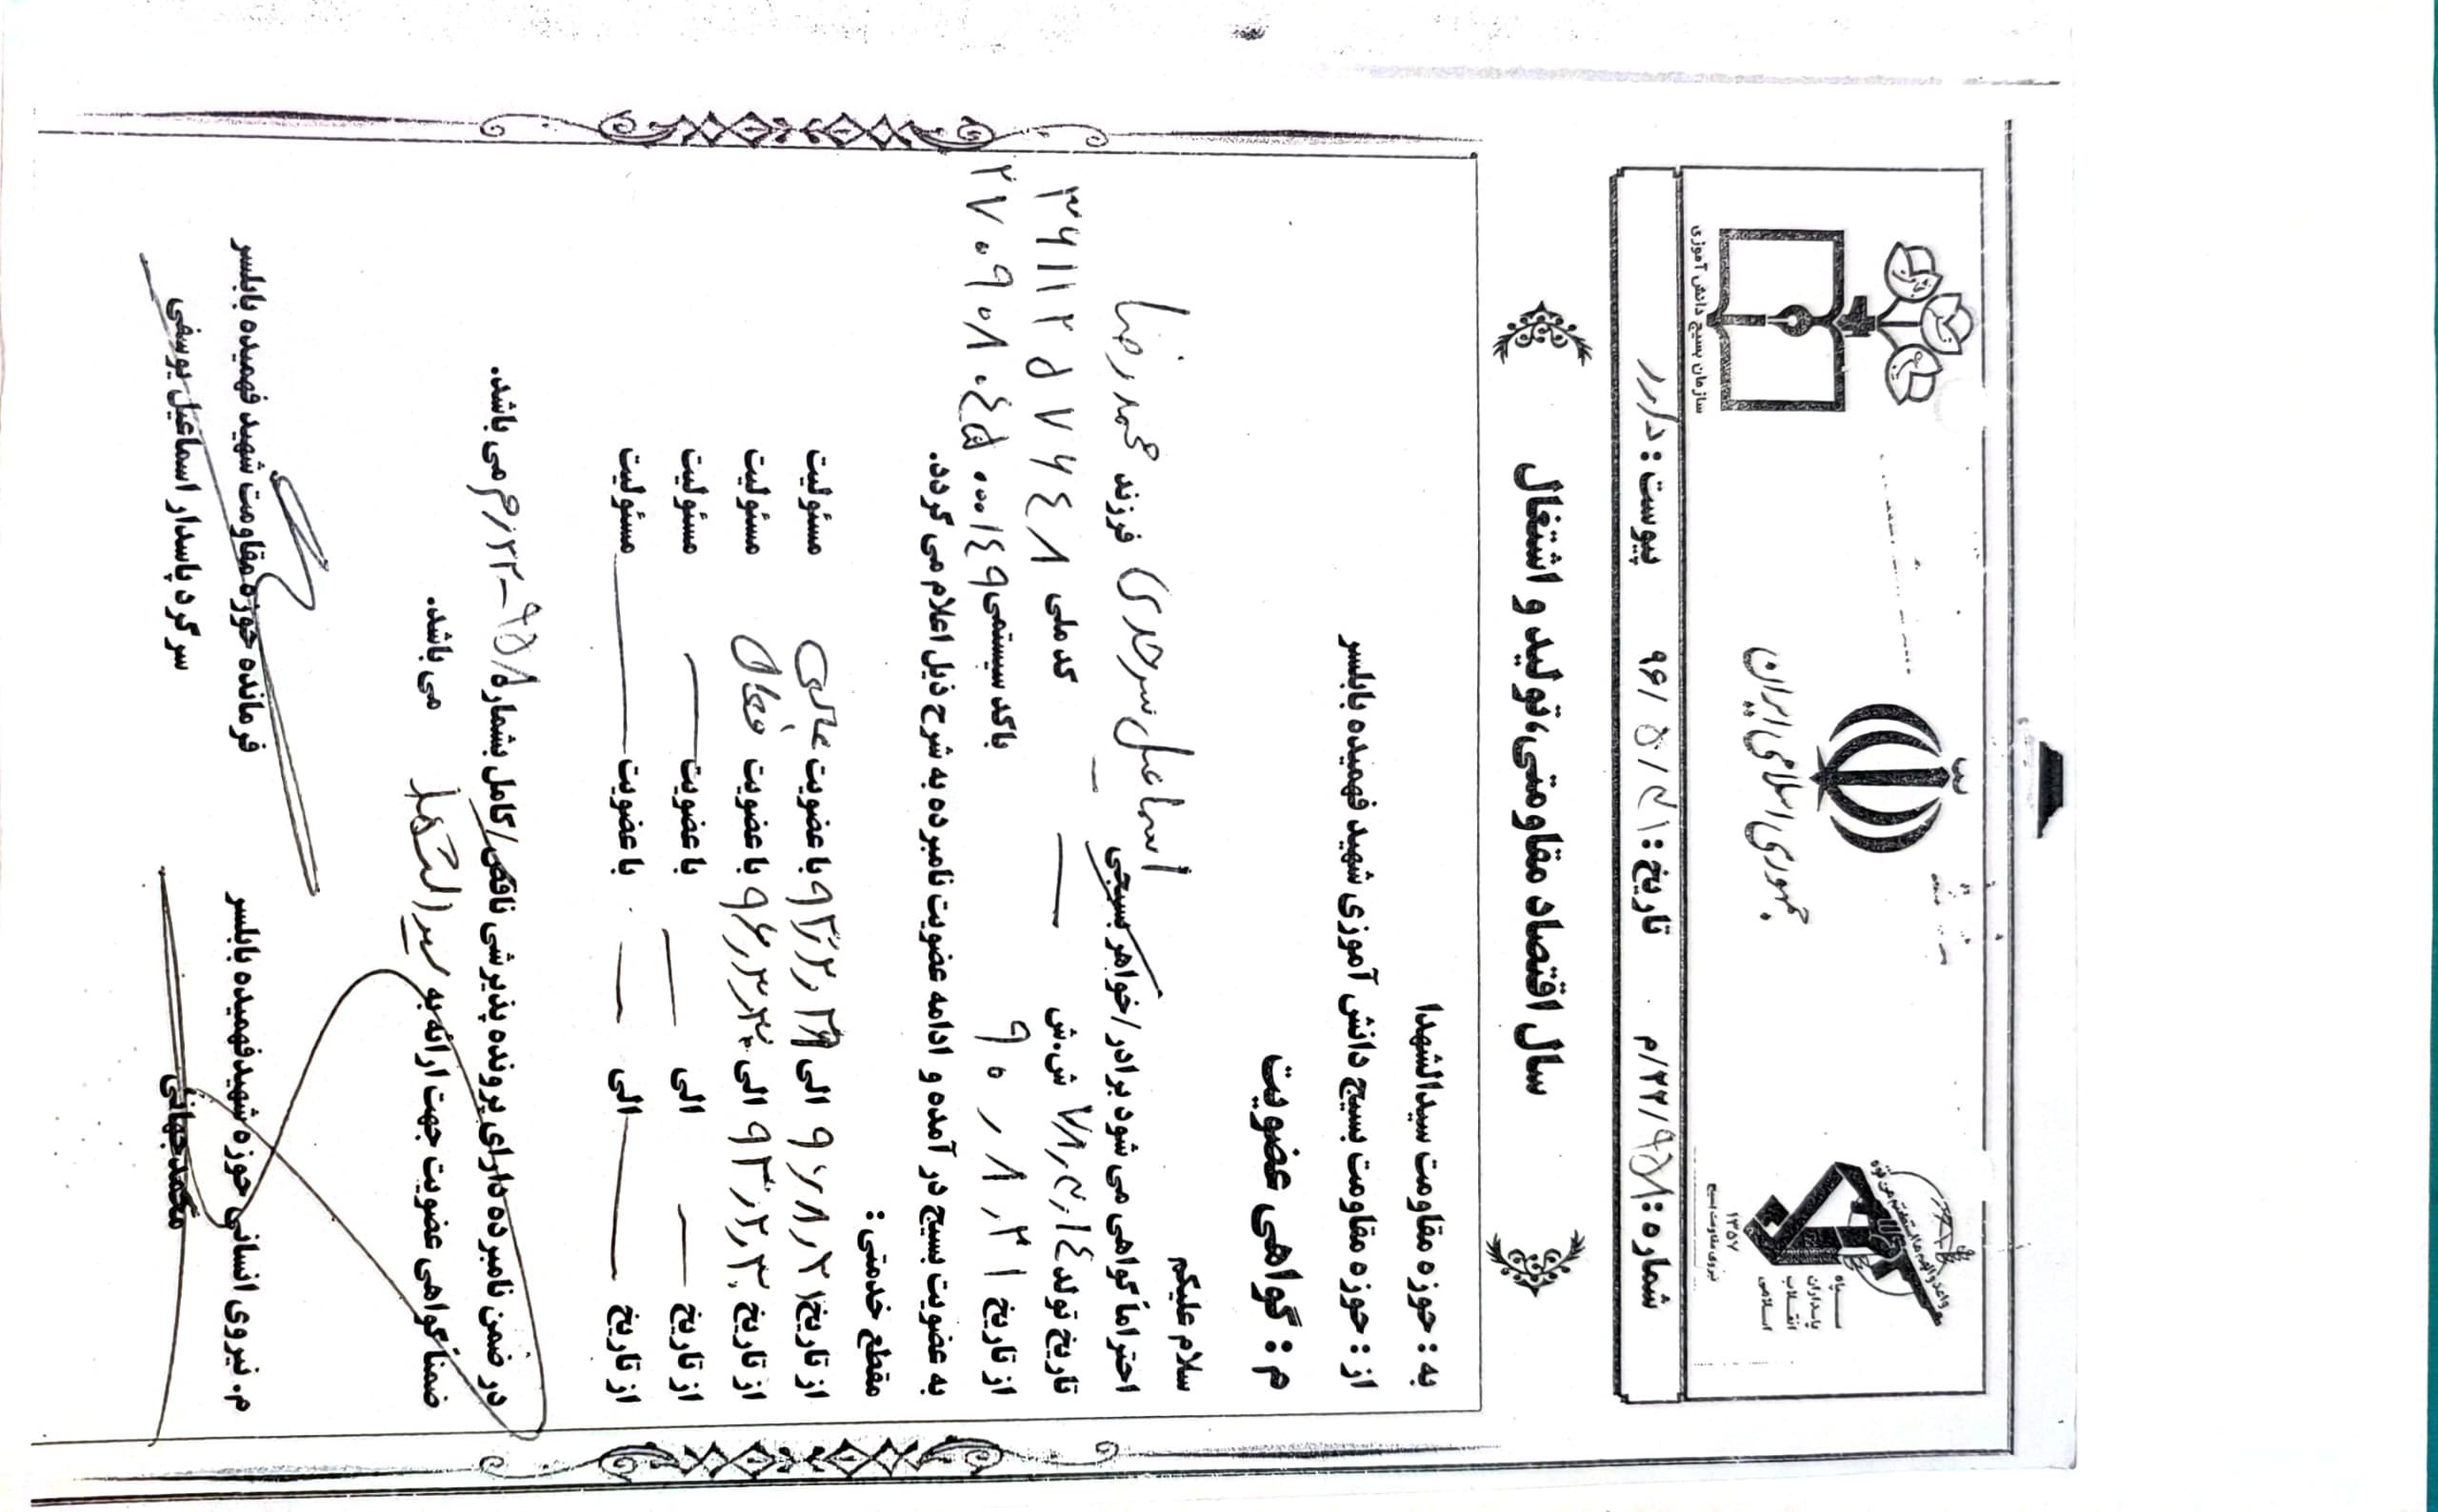 جمهوری اسلامی ایران
سپاه پاسداران انقلاب اسلامی
۱۳۵۷
نیروی مقاومت بسیج
سازمان بسیج دانش آموزی
شماره: ۹۵۸/۲۲/م تاریخ: ۹۶/۵/۲۱ پیوست: دارد
سال اقتصاد مقاومتی، تولید و اشتغال
به: حوزه مقاومت سیدالشهدا
از: حوزه مقاومت بسیج دانش آموزی شهید فهمیده بابلسر
م: گواهی عضویت
سلام علیکم
احتراماً گواهی می شود برادر/خواهر بسیجی اسماعیل سرحدی فرزند محمدرضا
تاریخ تولد ش.ش — کد ملی
از تاریخ ۹۰/۸/۲۱ باکد سیستمی
به عضویت بسیج در آمده و ادامه عضویت نامبرده به شرح ذیل اعلام می گردد.
مقطع خدمتی:
از تاریخ الی با عضویت عادی مسئولیت
از تاریخ الی با عضویت فعال مسئولیت
از تاریخ — الی — با عضویت — مسئولیت
از تاریخ — الی — با عضویت — مسئولیت
در ضمن نامبرده دارای پرونده پذیرشی ناقص/کامل بشماره می باشد.
ضمناً گواهی عضویت جهت ارائه به سیدالشهدا می باشد.
م. نیروی انسانی حوزه شهید فهمیده بابلسر
محمد جهانی
فرمانده حوزه مقاومت شهید فهمیده بابلسر
سرگرد پاسدار اسماعیل یوسفی